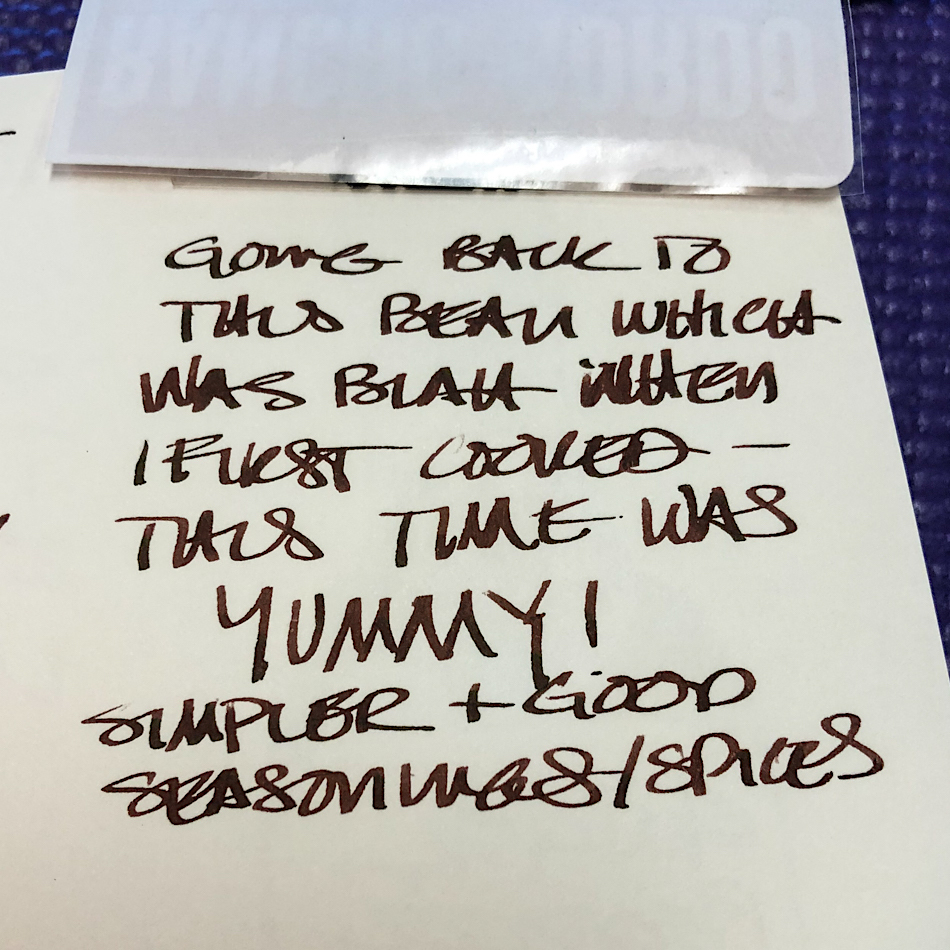 GOING BACK TO
THIS BEAN WHICH
WAS BLAH WHEN
I FIRST COOKED —
THIS TIME WAS
YUMMY!
SIMPLER + GOOD
SEASONINGS/SPICES